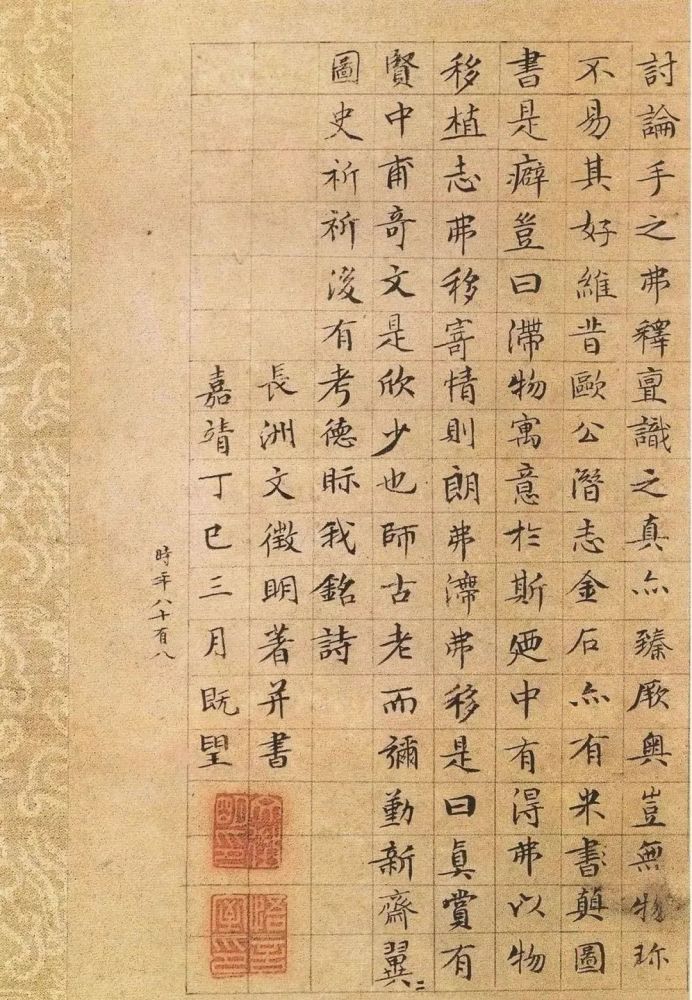 討論手之弗釋亶識之真亦臻厥奧豈無物珎
不易其好維昔歐公潛志金石亦有米書顛圖
書是癖豈曰滯物寓意於斯廼中有得弗以物
移植志弗移寄情則朗弗滯弗移是曰真賞有
賢中甫奇文是欣少也師古老而彌勤新齋翼〻
圖史祈祈後有考德眎我銘詩
長洲文徵明著并書
嘉靖丁巳三月既朢
時年八十有八
文徵明印
悟言室印